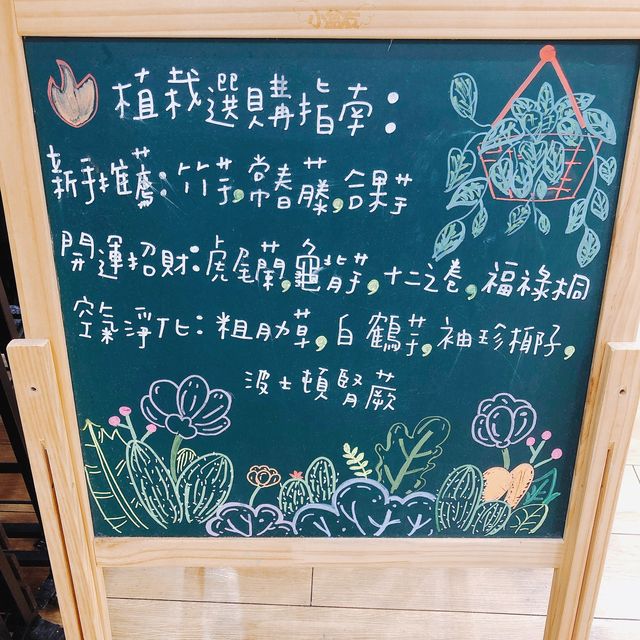 植栽選購指南：
新手推薦：竹芋，常春藤，合果芋
開運招財：虎尾蘭，龜背芋，十二之卷，福祿桐
空氣淨化：粗肋草，白鶴芋，袖珍椰子，
波士頓腎蕨